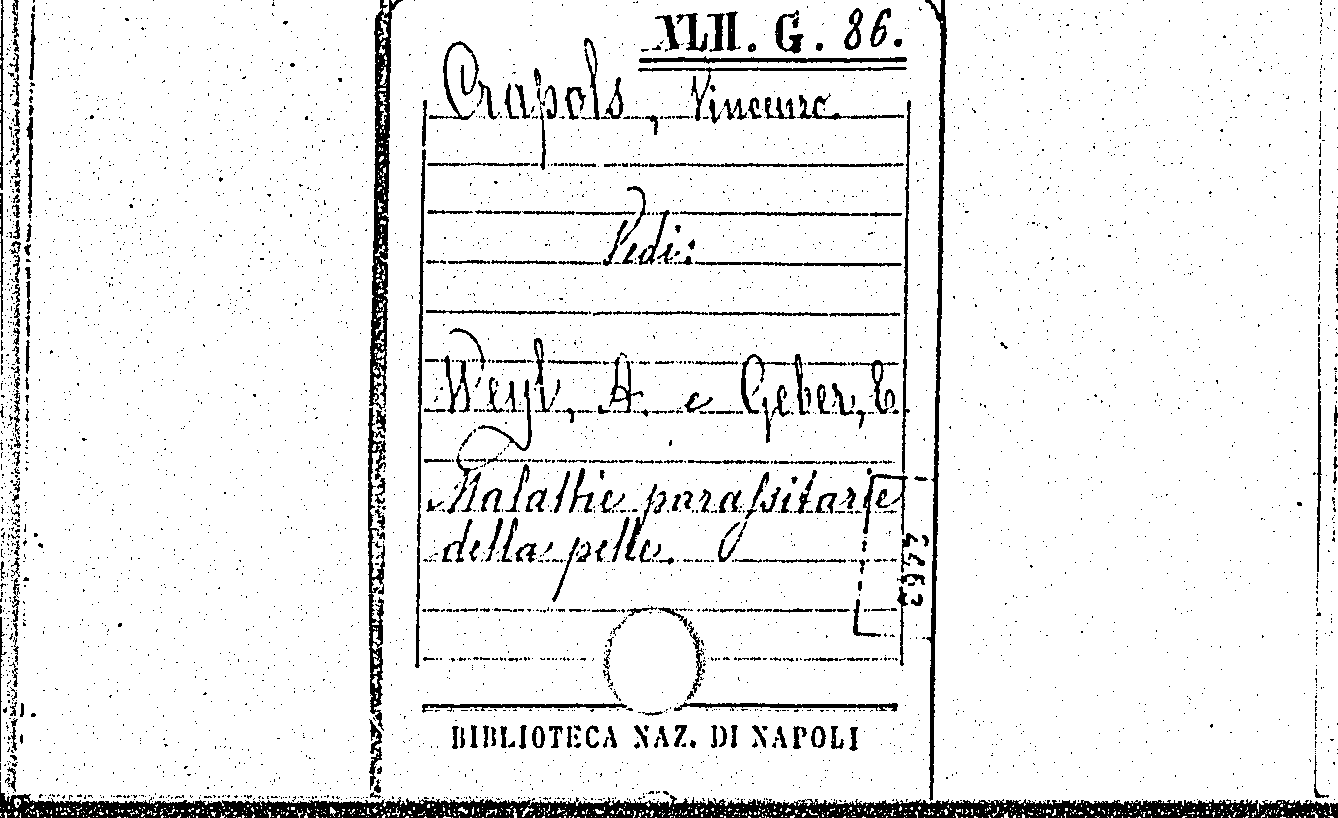 XLII. G. 86.
Crapols, Vincenzo
Vedi:
Weyl, A. e Geber, E.
Malattie parassitarie
della pelle.
BIBLIOTECA NAZ. DI NAPOLI